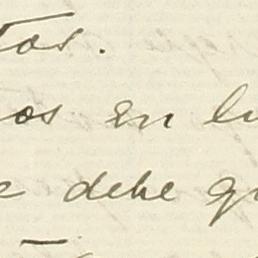 tos.
os en lu
e debe qu